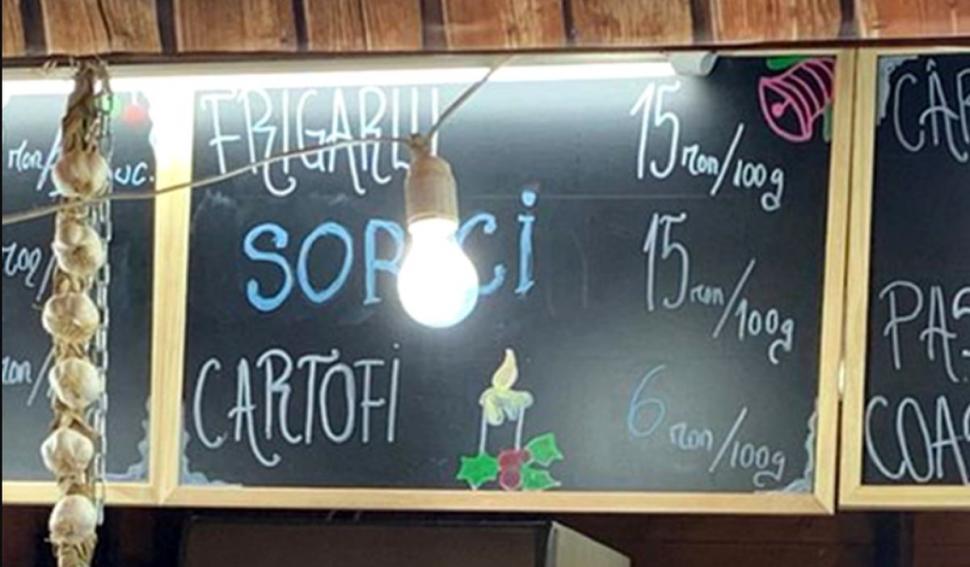 ron/BUC.
ron/
ron/
FRIGARUI 15 ron/100g
SORICI 15 ron/100g
CARTOFI 6 ron/100g